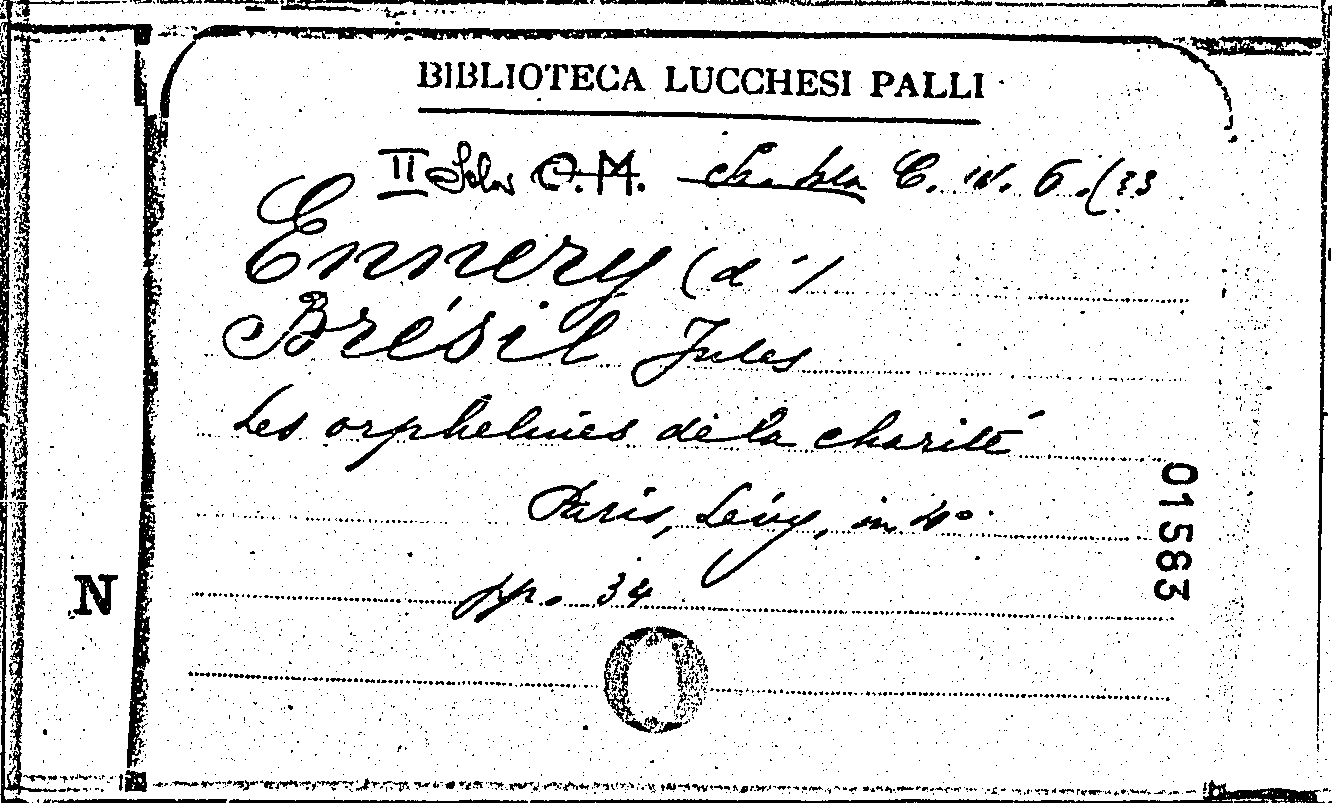 BIBLIOTECA LUCCHESI PALLI
II Sala O.M. C. IV. 6.(33
Ennery (d')
Brésil Jules
Les orphelines de la charité
Paris, Lévy, in 4°
pp. 34
01563
N